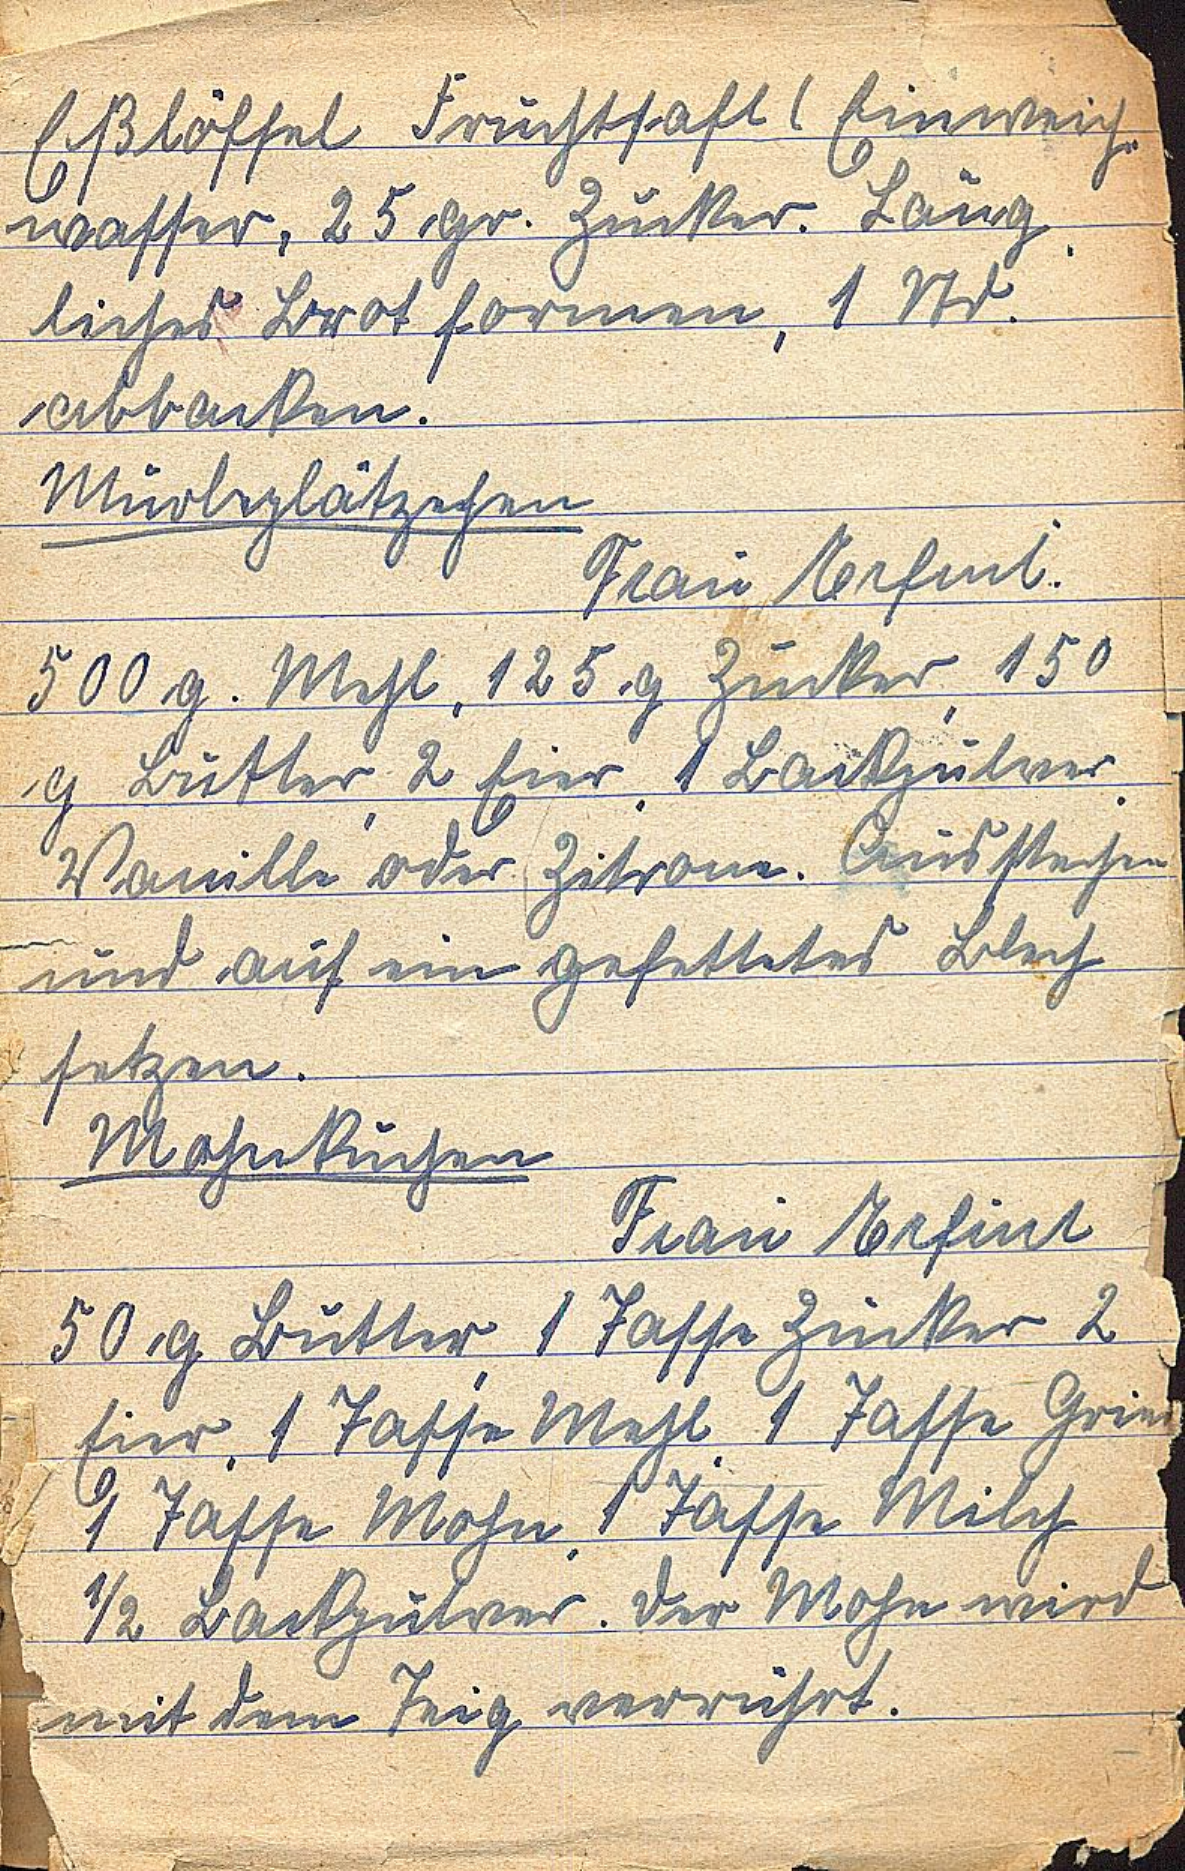 Eßlöffel Fruchtsaft (Einweich-
wasser, 25 gr. Zucker. Läng
liches Brot formen, 1 Std.
abbacken.
Mürbeplätzchen
Frau
500 g. Mehl, 125 g Zucker, 150
g Butter, 2 Eier, 1 Backpulver,
Vanille oder Zitrone. Ausstechen
und auf ein gefettetes Blech
setzen.
Mohnkuchen
Frau
50 g Butter, 1 Tasse Zucker 2
Eier, 1 Tasse Mehl, 1 Tasse Gries
1 Tasse Mohn, 1 Tasse Milch
1/2 Backpulver. Der Mohn wird
mit dem Teig verrührt.